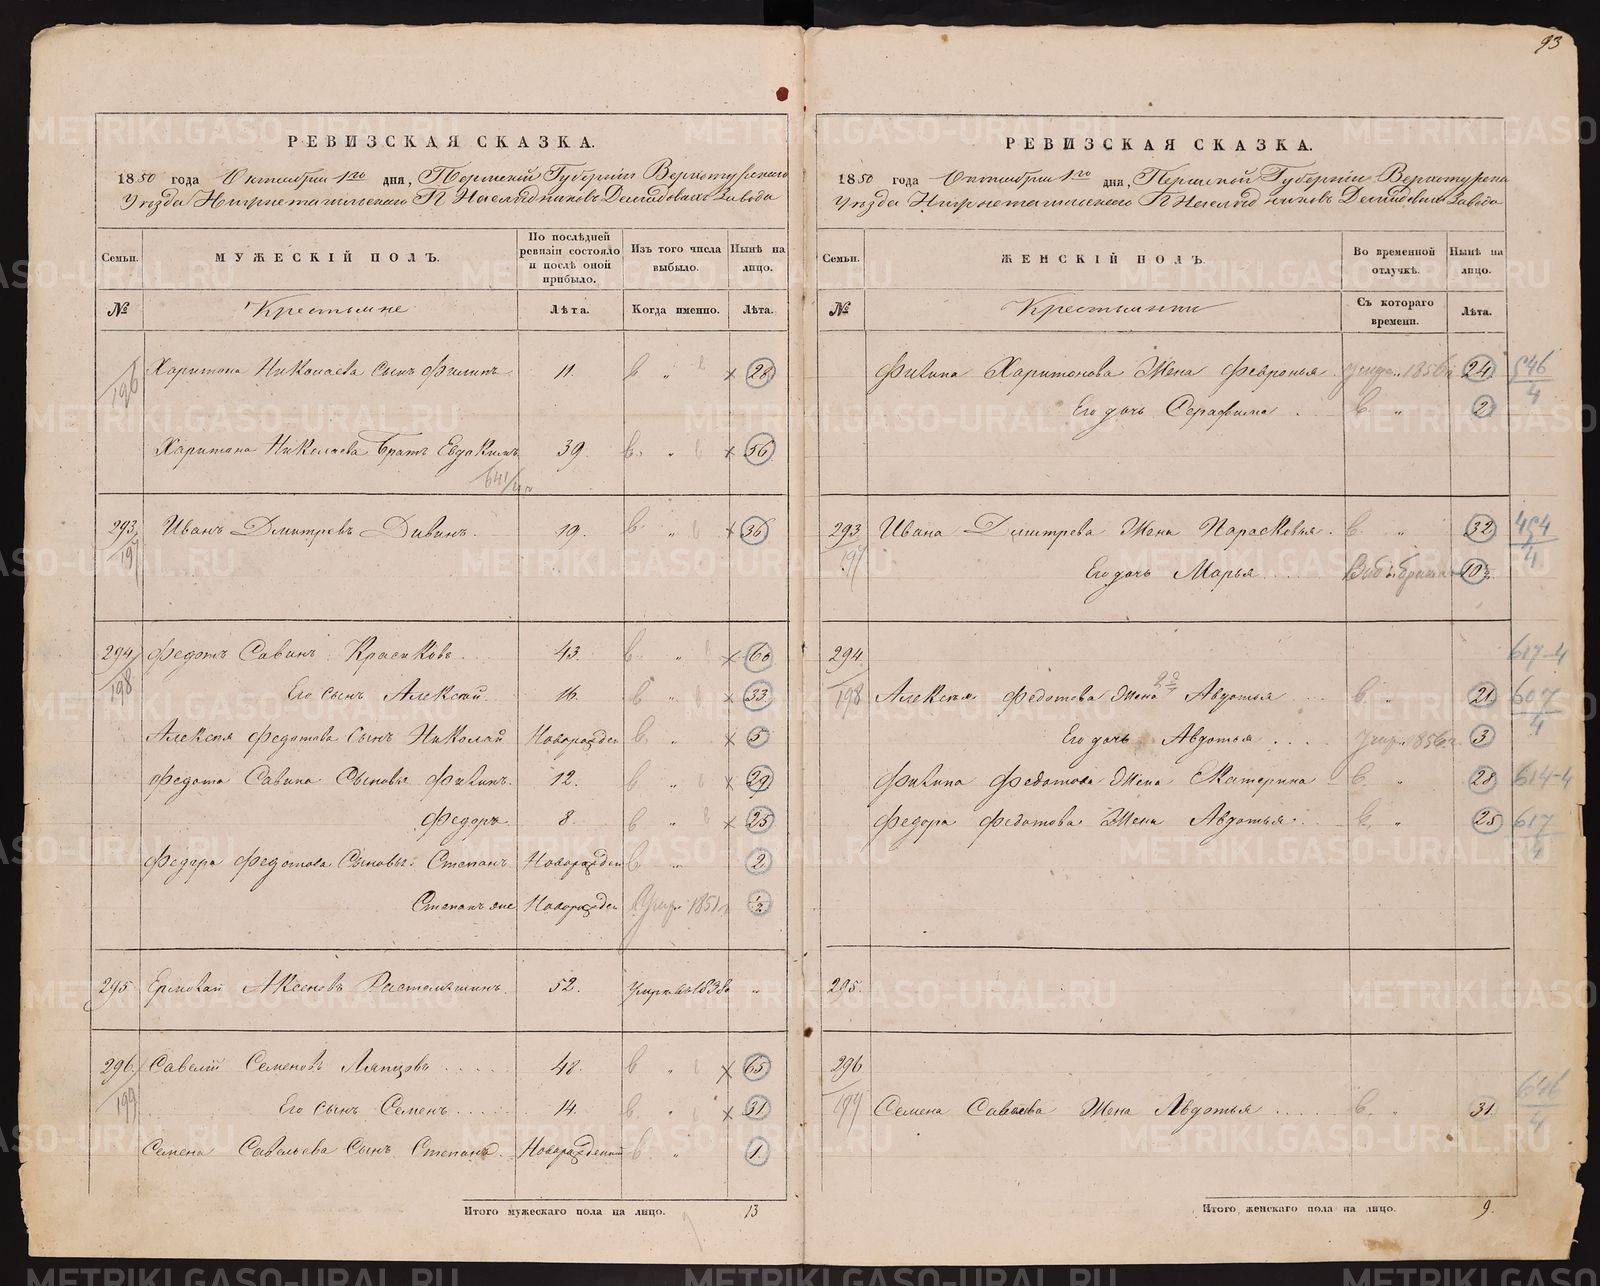 93
РЕВИЗСКАЯ СКАЗКА.
1850 года Октября 1го дня, Пермской Губерніи Верхотурскаго
Уѣзда Нижнетагильскаго П Наслѣдниковъ Демидовыхъ Завода
Семьи. МУЖЕСКІЙ ПОЛЪ. По послѣдней ревизіи состояло и послѣ оной прибыло. Изъ того числа выбыло. Нынѣ на лицо.
№ Крестьяне Лѣта. Когда именно. Лѣта.
196 Харитона Николаева сынъ Филипъ 11. в " в × 28
Харитона Николаева Братъ Евдокимъ 39. в " в × 56
641/
293. Иванъ Дмитревъ Дивинъ 19. в " в × 36
197
294 Федотъ Савинъ Красиковъ 43. в " в × 60
198 Его сынъ Алексѣй 16. в " в × 33
Алексѣя Федотова сынъ Николай Новорожден в " × 5
Федота Савина Сыновья Филипъ. 12. в " в × 29
Федоръ 8. в " в × 25
Федора Федотова Сыновья: Степанъ Новорожден в " 2
Степанъ же Новорожден Умре 1851 ½
295 Ермолай Аксеновъ 52. умре въ 1838 "
296. Савелій Семеновъ 48. в " в × 65
199 Его сынъ Семенъ 14. в " в × 31
Семена Савельева Сынъ Степанъ Новорожденный в " 1.
Итого мужескаго пола на лицо. 13
РЕВИЗСКАЯ СКАЗКА.
1850 года Октября 1го дня, Пермской Губерніи Верхотурска
Уѣзда Нижнетагильскаго П Наслѣдниковъ Демидовыхъ Завода
Семьи. ЖЕНСКІЙ ПОЛЪ. Во временной отлучкѣ. Нынѣ на лицо.
№ Крестьянки Съ котораго времени. Лѣта.
Филипа Харитонова Жена Февронья. умре 1856 24 546/4
Его дочь Серафима в " 2
293 Ивана Дмитрева Жена Парасковья. в " 32 454/4
197 Его дочь Марья 10½
294. 617-4
198 Алексѣя Федотова Жена Авдотья в " 21 607/4
Его дочь Авдотья умр. 1856г 3
Филипа Федотова Жена Екатерина в " 28 614-4
Федора Федотова Жена Авдотья. в " 25 617/4
295.
296
199 Семена Савельева Жена Авдотья в " 31 646/4
Итого женскаго пола на лицо. 9.